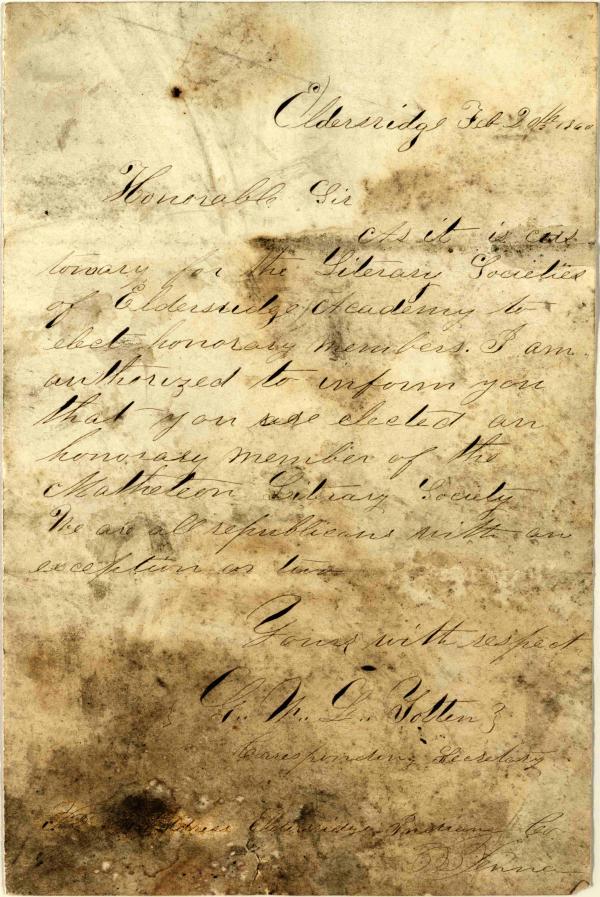 Eldersridge Feb 20th 1860
Honorable Sir
As it is cus
tomary for the Literary Societies
of Eldersridge Academy to
elect honorary members. I am
authorized to inform you
that you are elected an
honorary member of the
Matheteon Literary Society
We are all republicans with an
exception or two
Yours with respect
W. Totten
Corresponding Secretary
Address Eldersridge Indiana Co
Penna